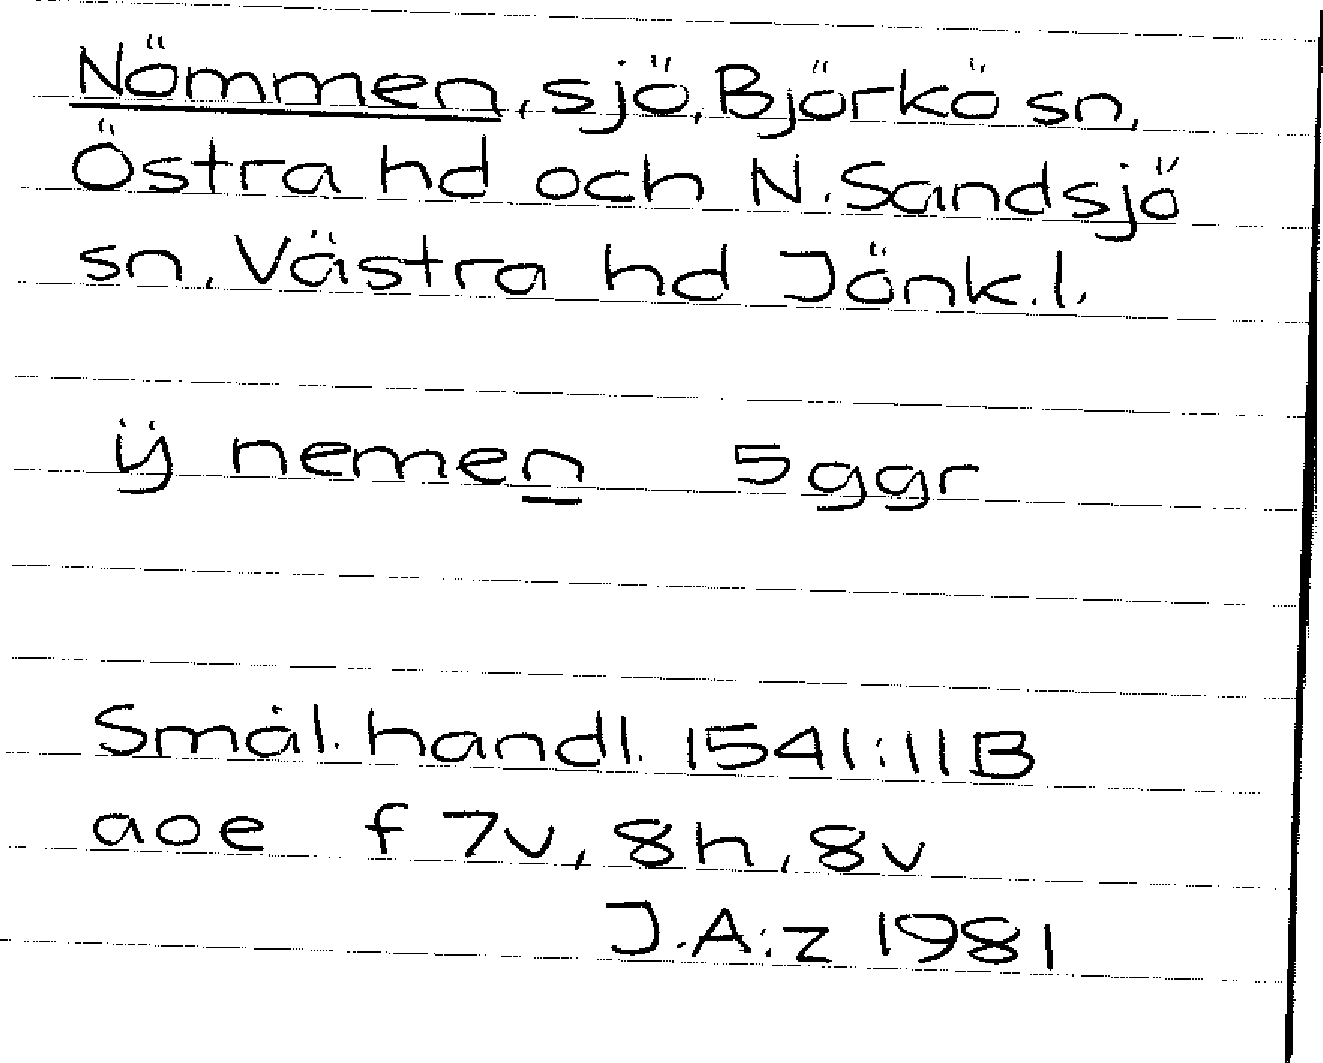 Nömmen, sjö, Björkö sn,
Östra hd och N. Sandsjö
sn, Västra hd Jönk. l.
ij nemen 5 ggr
Smål. handl. 1541:11B
aoe f 7v, 8h, 8v
J.A:z 1981